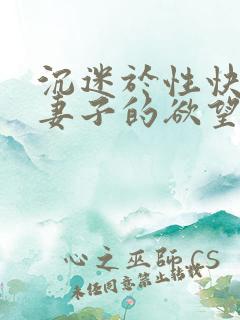 沉迷於性快
妻子的欲望
心之巫師 CS
未任同意禁止转载